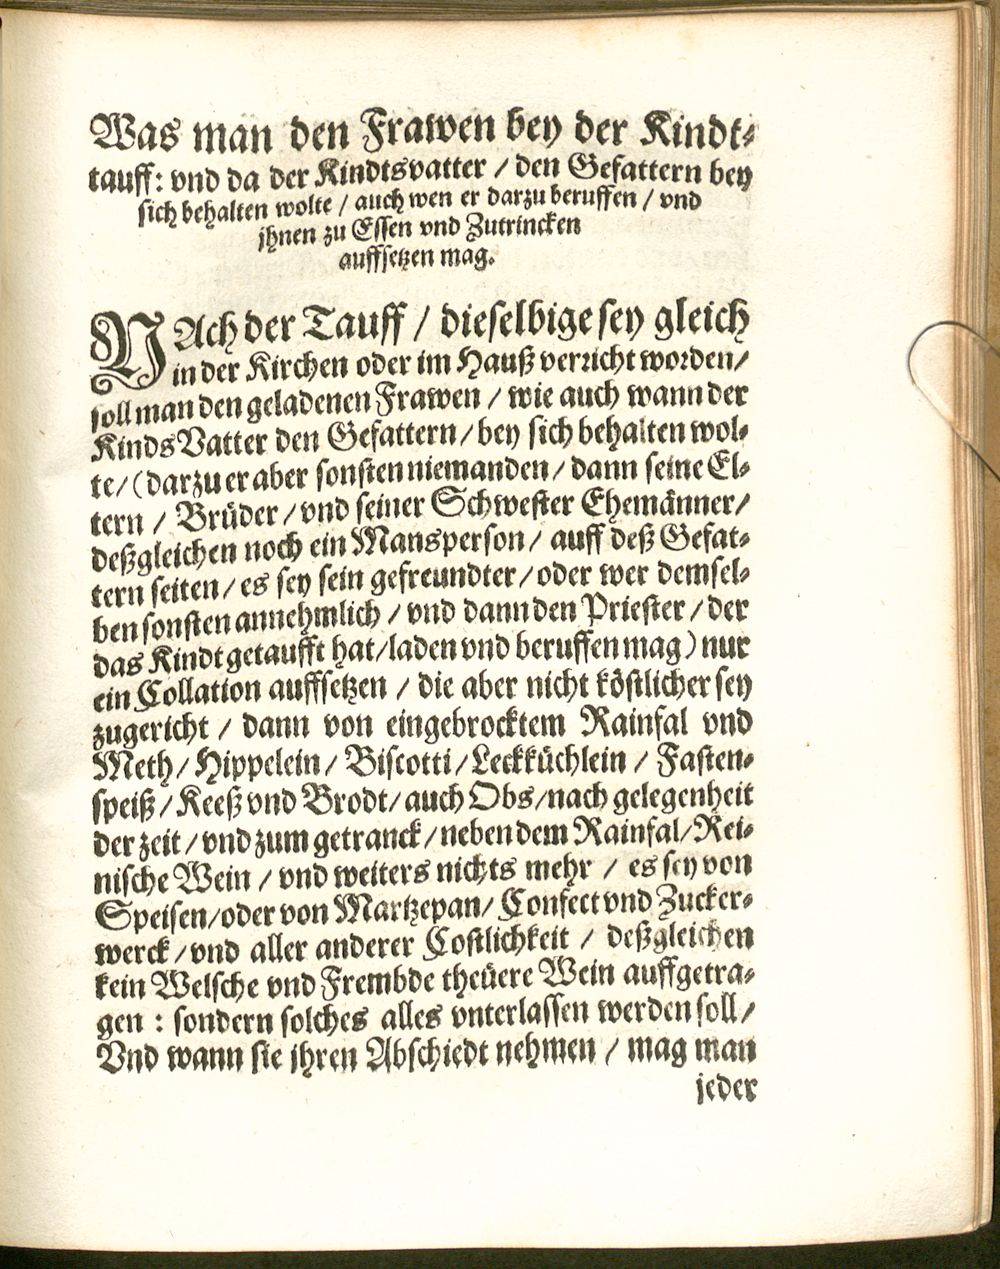 Was man den Frawen bey der Kindt-
tauff: vnd da der Kindtsvatter / den Gefattern bey
sich behalten wolte / auch wen er darzu beruffen / vnd
jhnen zu Essen vnd Zutrincken
auffsetzen mag.
NAch der Tauff / dieselbige sey gleich
in der Kirchen oder im Hauß verricht worden/
soll man den geladenen Frawen / wie auch wann der
Kinds Vatter den Gefattern / bey sich behalten wol-
te / (darzu er aber sonsten niemanden / dann seine El-
tern / Brüder / vnd seiner Schwester Ehemänner/
deßgleichen noch ein Mansperson / auff deß Gefat-
tern seiten / es sey sein gefreundter / oder wer demsel-
ben sonsten annehmlich / vnd dann den Priester / der
das Kindt getaufft hat / laden vnd beruffen mag) nur
ein Collation auffsetzen / die aber nicht köstlicher sey
zugericht / dann von eingebrocktem Rainfal vnd
Meth / Hippelein / Biscotti / Leckküchlein / Fasten-
speiß / Keeß vnd Brodt / auch Obs / nach gelegenheit
der zeit / vnd zum getranck / neben dem Rainfal / Rei-
nische Wein / vnd weiters nichts mehr / es sey von
Speisen / oder von Martzepan / Confect vnd Zucker-
werck / vnd aller anderer Costlichkeit / deßgleichen
kein Welsche vnd Frembde theüere Wein auffgetra-
gen : sondern solches alles vnterlassen werden soll /
Vnd wann sie jhren Abschiedt nehmen / mag man
jeder